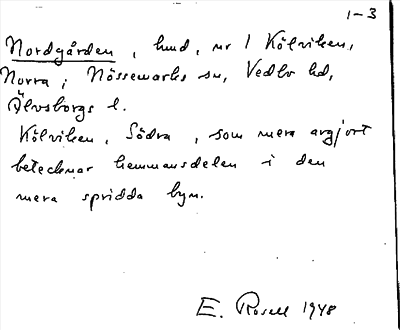 1-3
Nordgården, hmd, nr 1 Kölviken,
Norra; Nössemarks sn, Vedbo hd,
Älvsborgs l.
Kölviken, Södra, som mera avgjort
betecknar hemmansdelen i den
mera spridda byn.
E. Rosell 1948